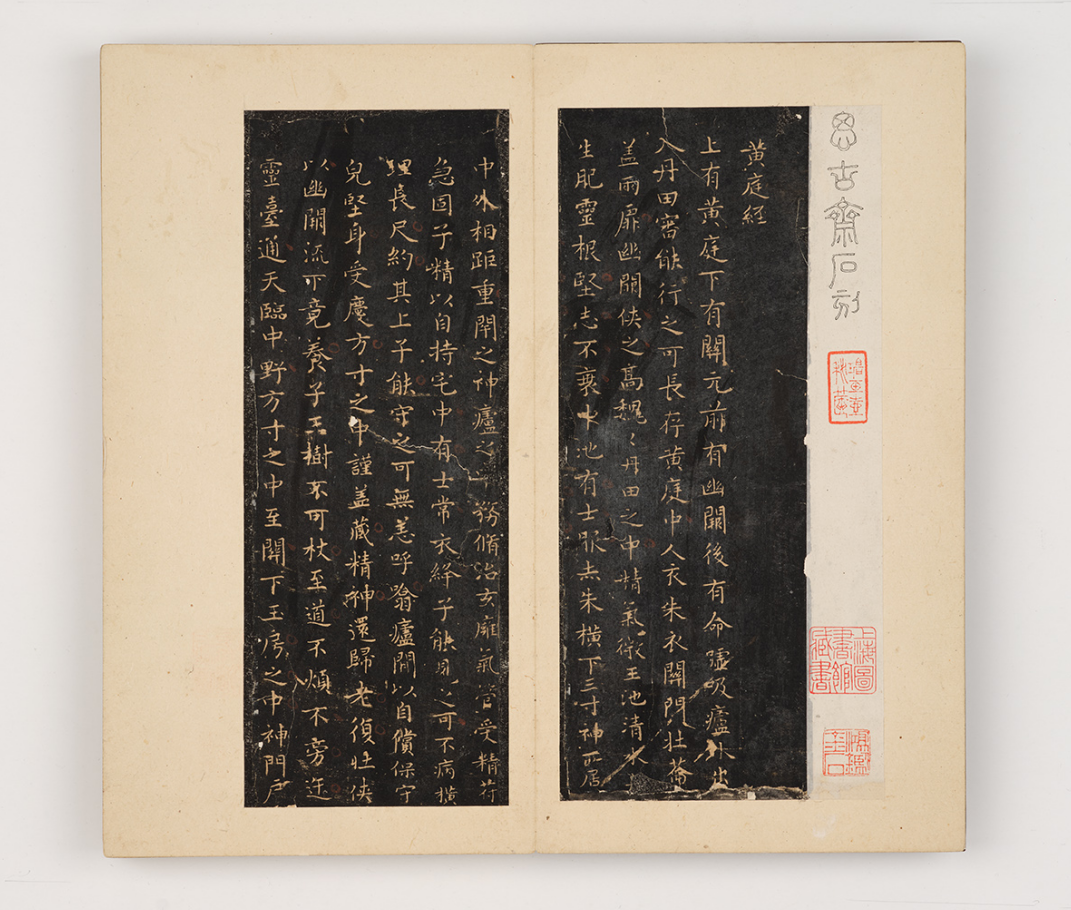 思古齋石刻
上海圖書館藏書
黃庭經
上有黃庭下有關元前有幽闕後有命噓吸廬外出
入丹田審能行之可長存黃庭中人衣朱衣關門壯蘥
蓋兩扉幽闕俠之高魏〻丹田之中精氣微玉池清水
生肥靈根堅志不衰中池有士服赤朱橫下三寸神所居
中外相距重閉之神廬之中務脩治玄廱氣管受精符
急固子精以自持宅中有士常衣絳子能見之可不病橫
理長尺約其上子能守之可無恙呼噏廬間以自償保守
皃堅身受慶方寸之中謹蓋藏精神還歸老復壯俠
以幽闕流下竟養子玉樹不可杖至道不煩不旁迕
靈臺通天臨中野方寸之中至關下玉房之中神門戶